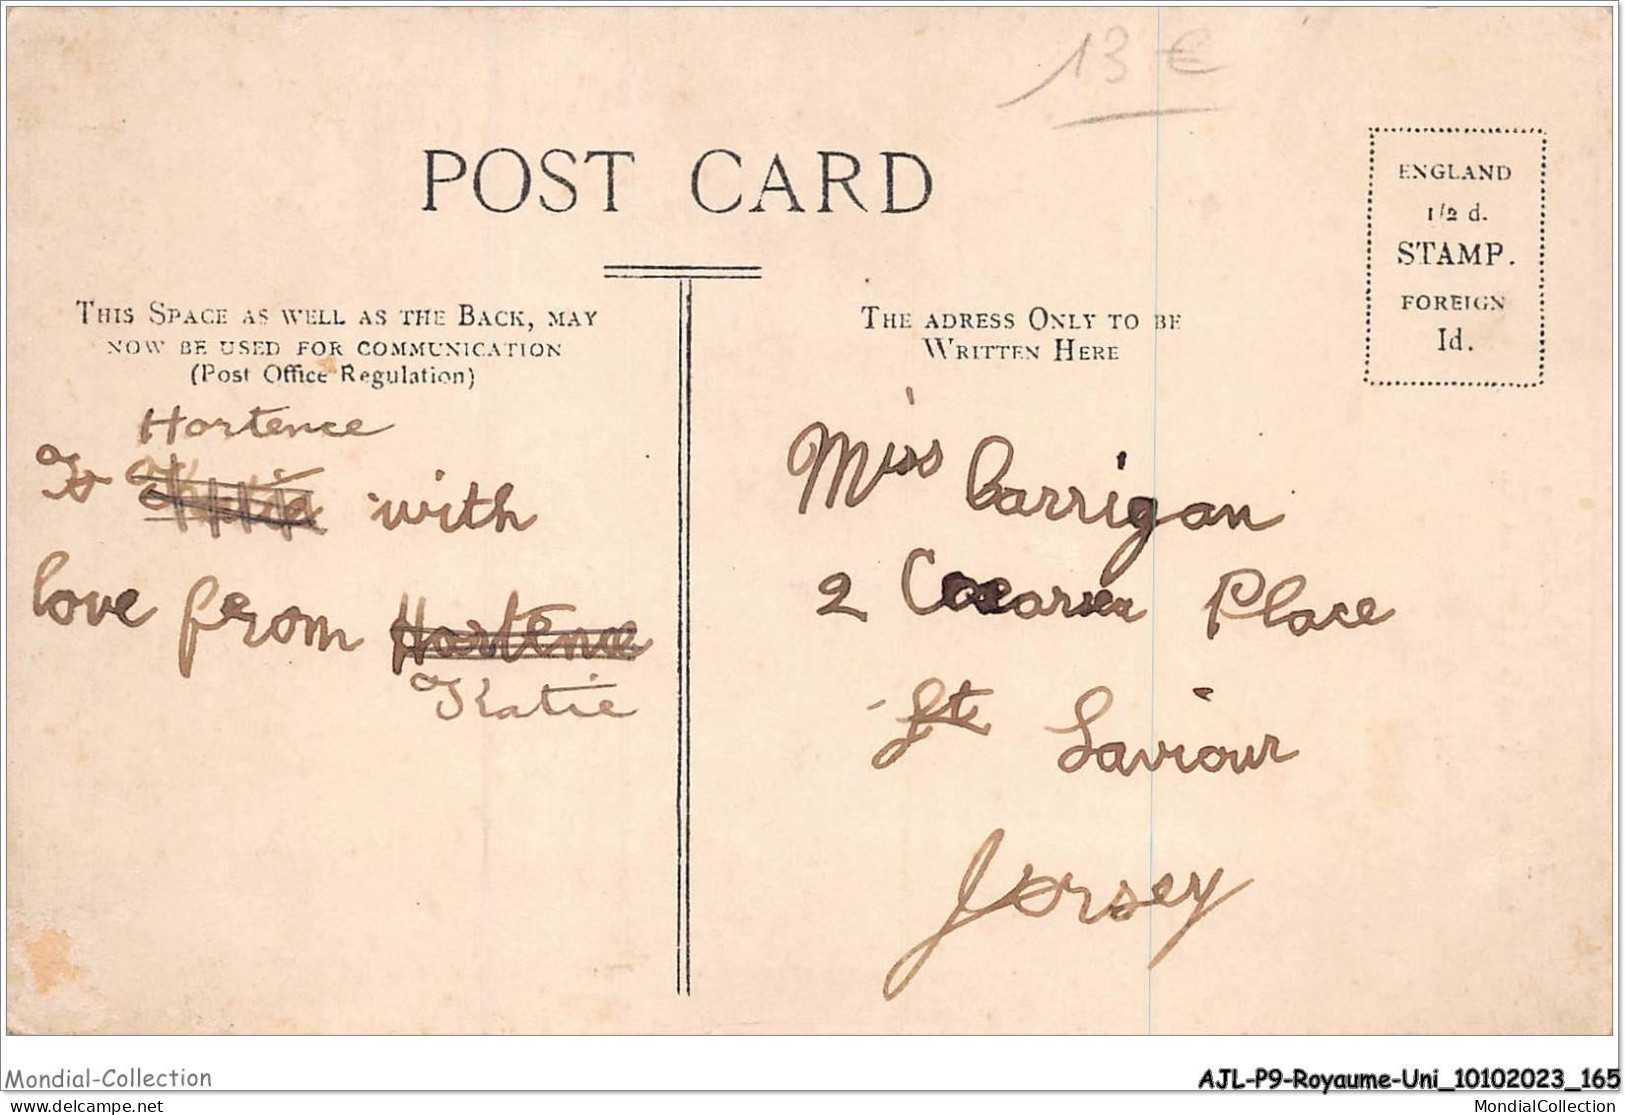 13 €
POST CARD
ENGLAND
1/2 d.
STAMP.
FOREIGN
Id.
THIS SPACE AS WELL AS THE BACK, MAY
NOW BE USED FOR COMMUNICATION
(Post Office Regulation)
Hortence
To Katie with
love from Hortence
Katie
THE ADRESS ONLY TO BE
WRITTEN HERE
Miss Carrigan
2 Place
St Saviour
Jersey
Mondial-Collection
AJL-P9-Royaume-Uni_10102023_165
mondial-collection.delcampe.net
MondialCollection